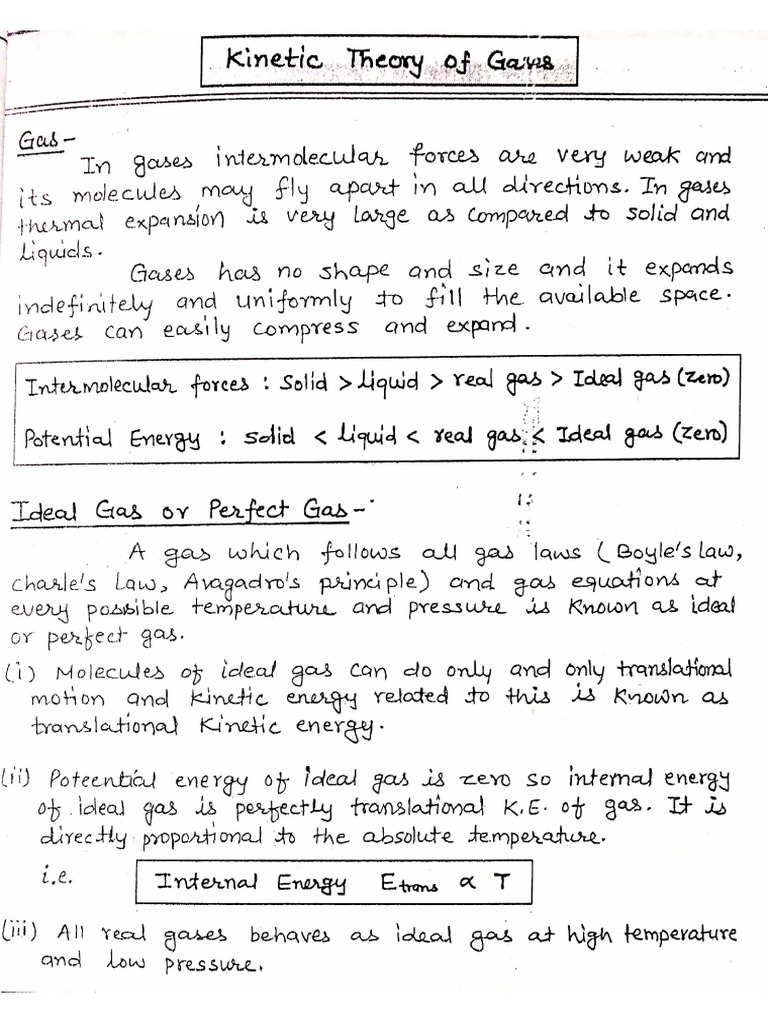 Kinetic Theory of Gases
Gas-
In gases intermolecular forces are very weak and
its molecules may fly apart in all directions. In gases
thermal expansion is very large as compared to solid and
Liquids.
Gases has no shape and size and it expands
indefinitely and uniformly to fill the available space.
Gases can easily compress and expand.
Intermolecular forces : Solid > liquid > real gas > Ideal gas (zero)
Potential Energy : solid < liquid < real gas < Ideal gas (zero)
Ideal Gas or Perfect Gas-
A gas which follows all gas laws (Boyle's law,
charle's Law, Avagadro's principle) and gas equations at
every possible temperature and pressure is known as ideal
or perfect gas.
(i) Molecules of ideal gas can do only and only translational
motion and kinetic energy related to this is known as
translational kinetic energy.
(ii) Poteential energy of ideal gas is zero so internal energy
of ideal gas is perfectly translational K.E. of gas. It is
directly proportional to the absolute temperature.
i.e. Internal Energy E trans ∝ T
(iii) All real gases behaves as ideal gas at high temperature
and low pressure.